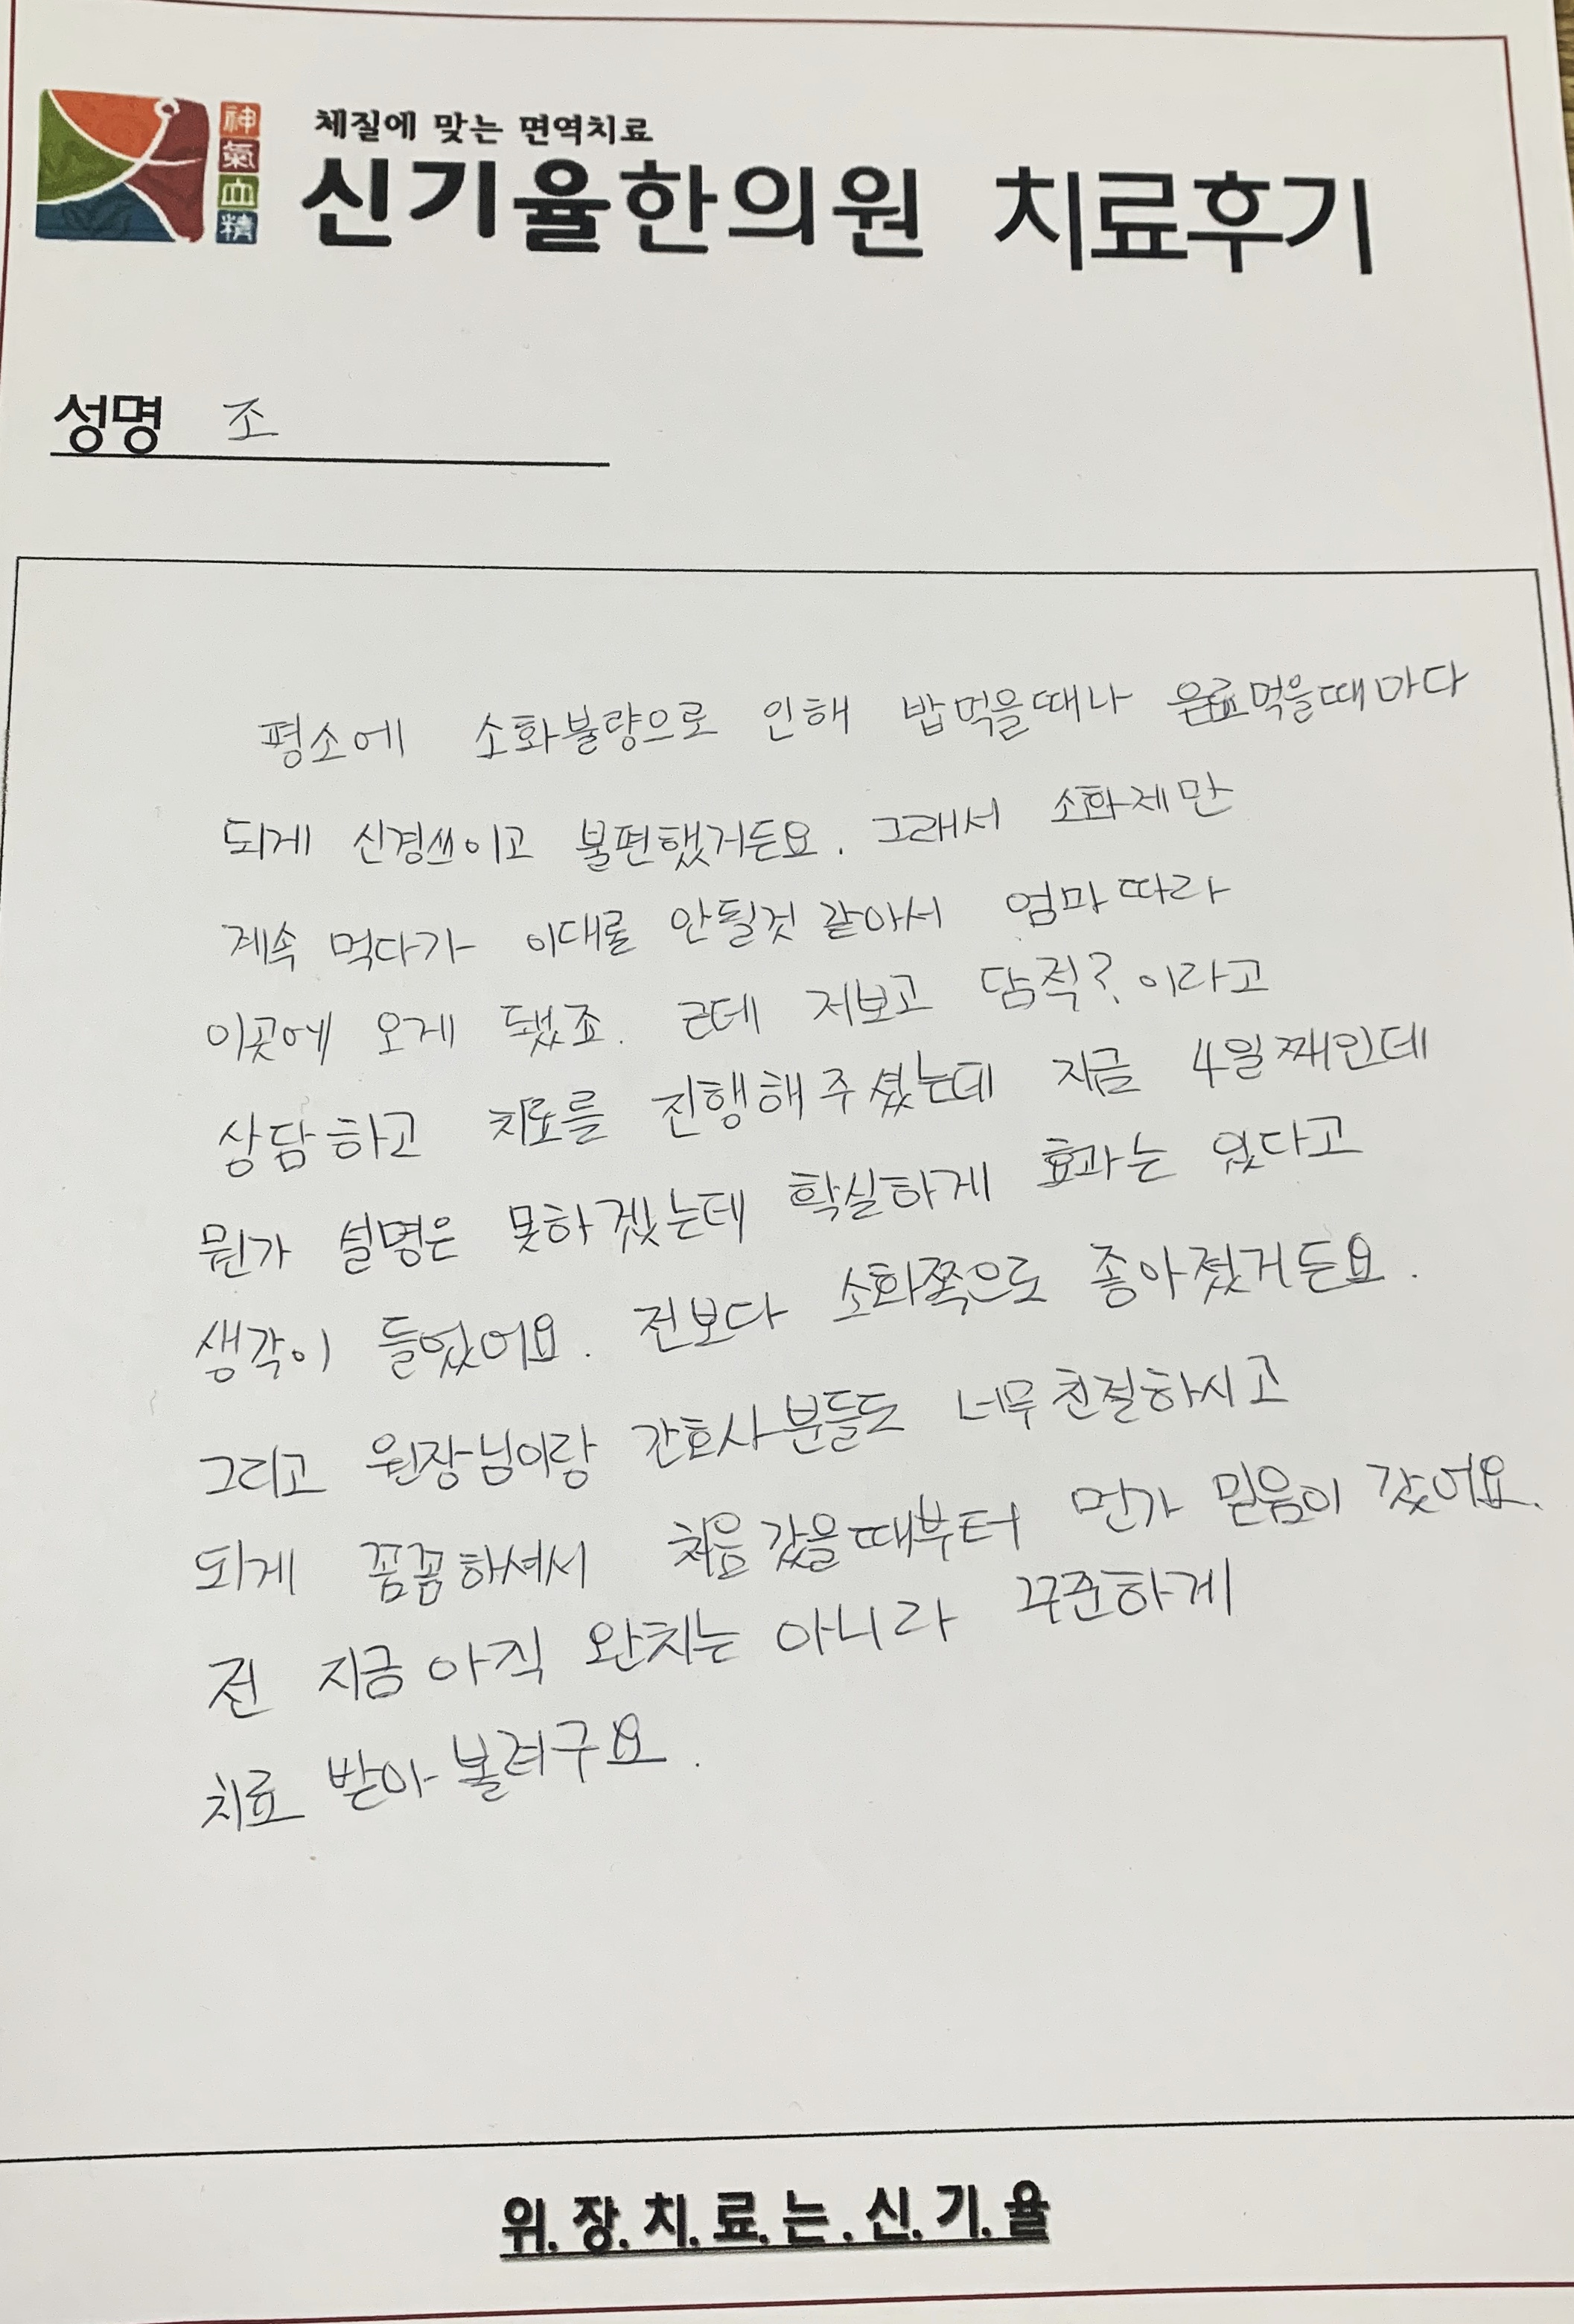 神氣血精
체질에 맞는 면역치료
신기율한의원 치료후기
성명 조
평소에 소화불량으로 인해 밥먹을때나 음료먹을때마다
되게 신경쓰이고 불편했거든요. 그래서 소화제만
계속 먹다가 이대론 안될것 같아서 엄마따라
이곳에 오게 됐죠. 근데 저보고 담적? 이라고
상담하고 치료를 진행해주셨는데 지금 4일째인데
뭔가 설명은 못하겠는데 확실하게 효과는 있다고
생각이 들었어요. 전보다 소화쪽으로 좋아졌거든요.
그리고 원장님이랑 간호사분들도 너무친절하시고
되게 꼼꼼하셔서 처음갔을때부터 먼가 믿음이 갔어요.
전 지금아직 완치는 아니라 꾸준하게
치료 받아볼려구요.
위.장.치.료.는.신.기.율